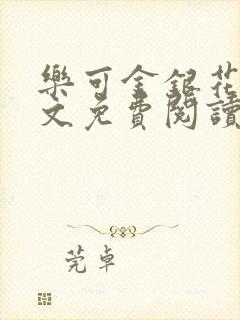 樂可金銀花
文免費閱讀
莞卓